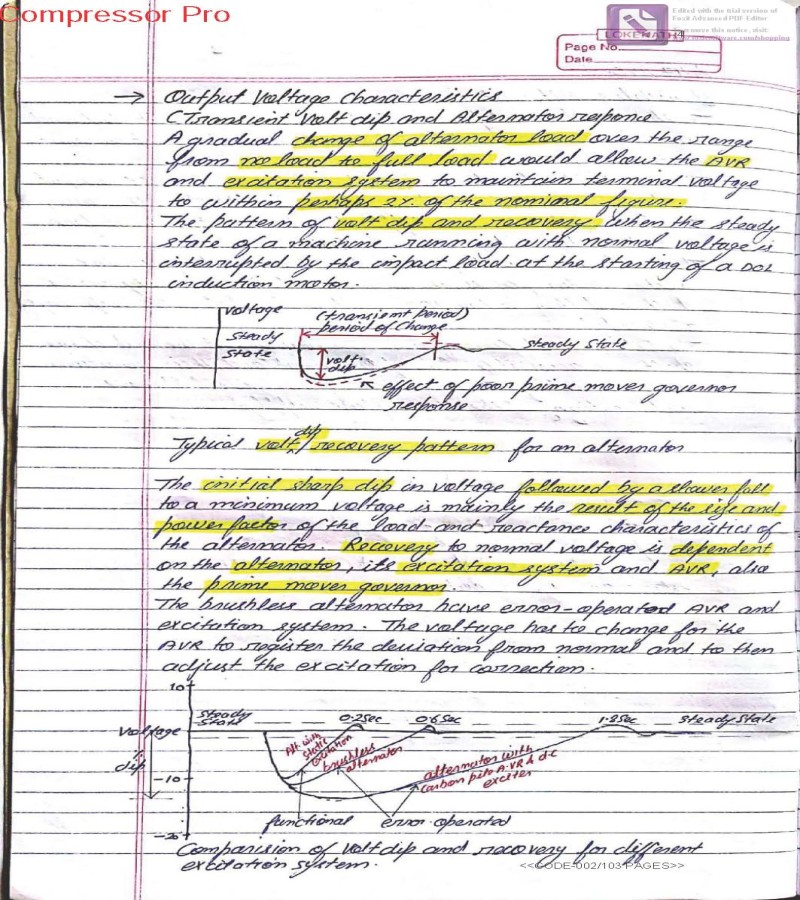 Compressor Pro
Edited with the trial version of
Foxit Advanced PDF Editor
To remove this notice, visit:
www.foxitsoftware.com/shopping
LOKENATH
Page No.
Date
→ Output Voltage Characteristics
(Transient Volt dip and Alternator response
A gradual change of alternator load over the range
from no load to full load would allow the AVR
and excitation system to maintain terminal voltage
to within perhaps 2%. of the nominal figure.
The pattern of volt dip and recovery when the steady
state of a machine running with normal voltage is
interrupted by the impact load at the starting of a DOL
induction motor.
Voltage
(transient period)
period of Change
Steady
State
steady State
volt.
dip
effect of poor prime mover governor
response
Typical volt dip recovery pattern for an alternator
The initial sharp dip in voltage followed by a slower fall
to a minimum voltage is mainly the result of the size and
power factor of the load and reactance characteristics of
the alternator. Recovery to normal voltage is dependent
on the alternator, its excitation system and AVR, also
the prime mover governor.
The brushless alternator have error-operated AVR and
excitation system. The voltage has to change for the
AVR to register the deviation from normal and to then
adjust the excitation for correction.
10
Steady
State
0.2sec 0.6sec 1.8sec steady State
Voltage
%
dip
-10
-20
Alt. with
static
excitation
brushless
alternator
alternator with
carbon pile A.VR & d.c
exciter
functional error-operated
Comparision of Volt dip and recovery for different
excitation system.
<<CODE-002/103 PAGES>>